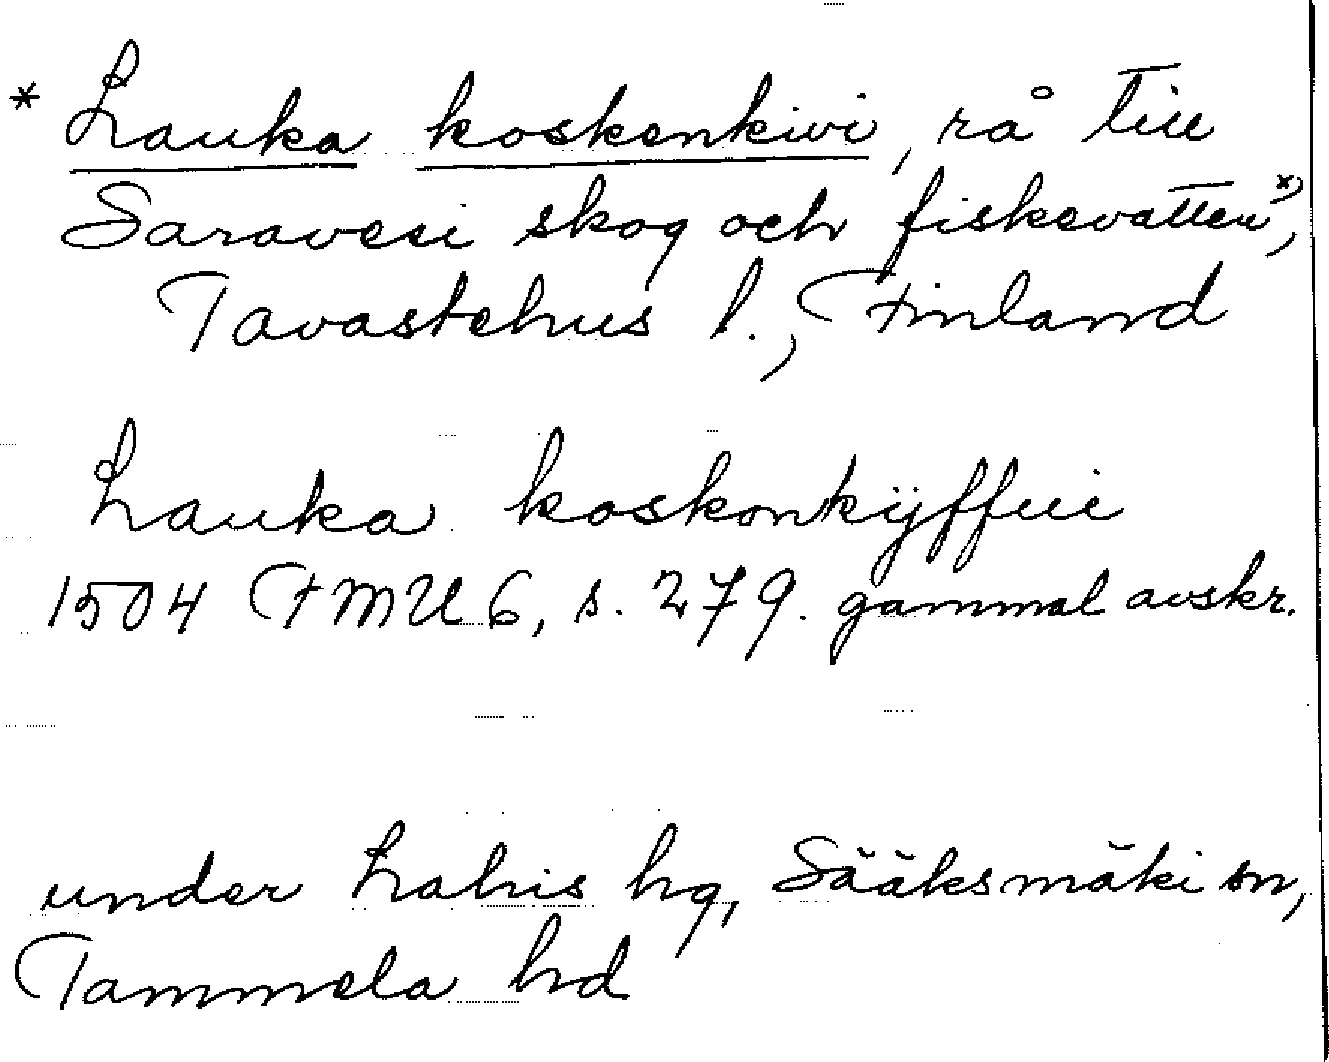 * Lauka koskenkivi, rå till
Saravesi skog och fiskevatten x),
Tavastehus l., Finland
Lauka koskonkÿffui
1504 FMU 6, s. 279. gammal avskr.
under Lahis hg, Sääksmäki sn,
Tammela hd